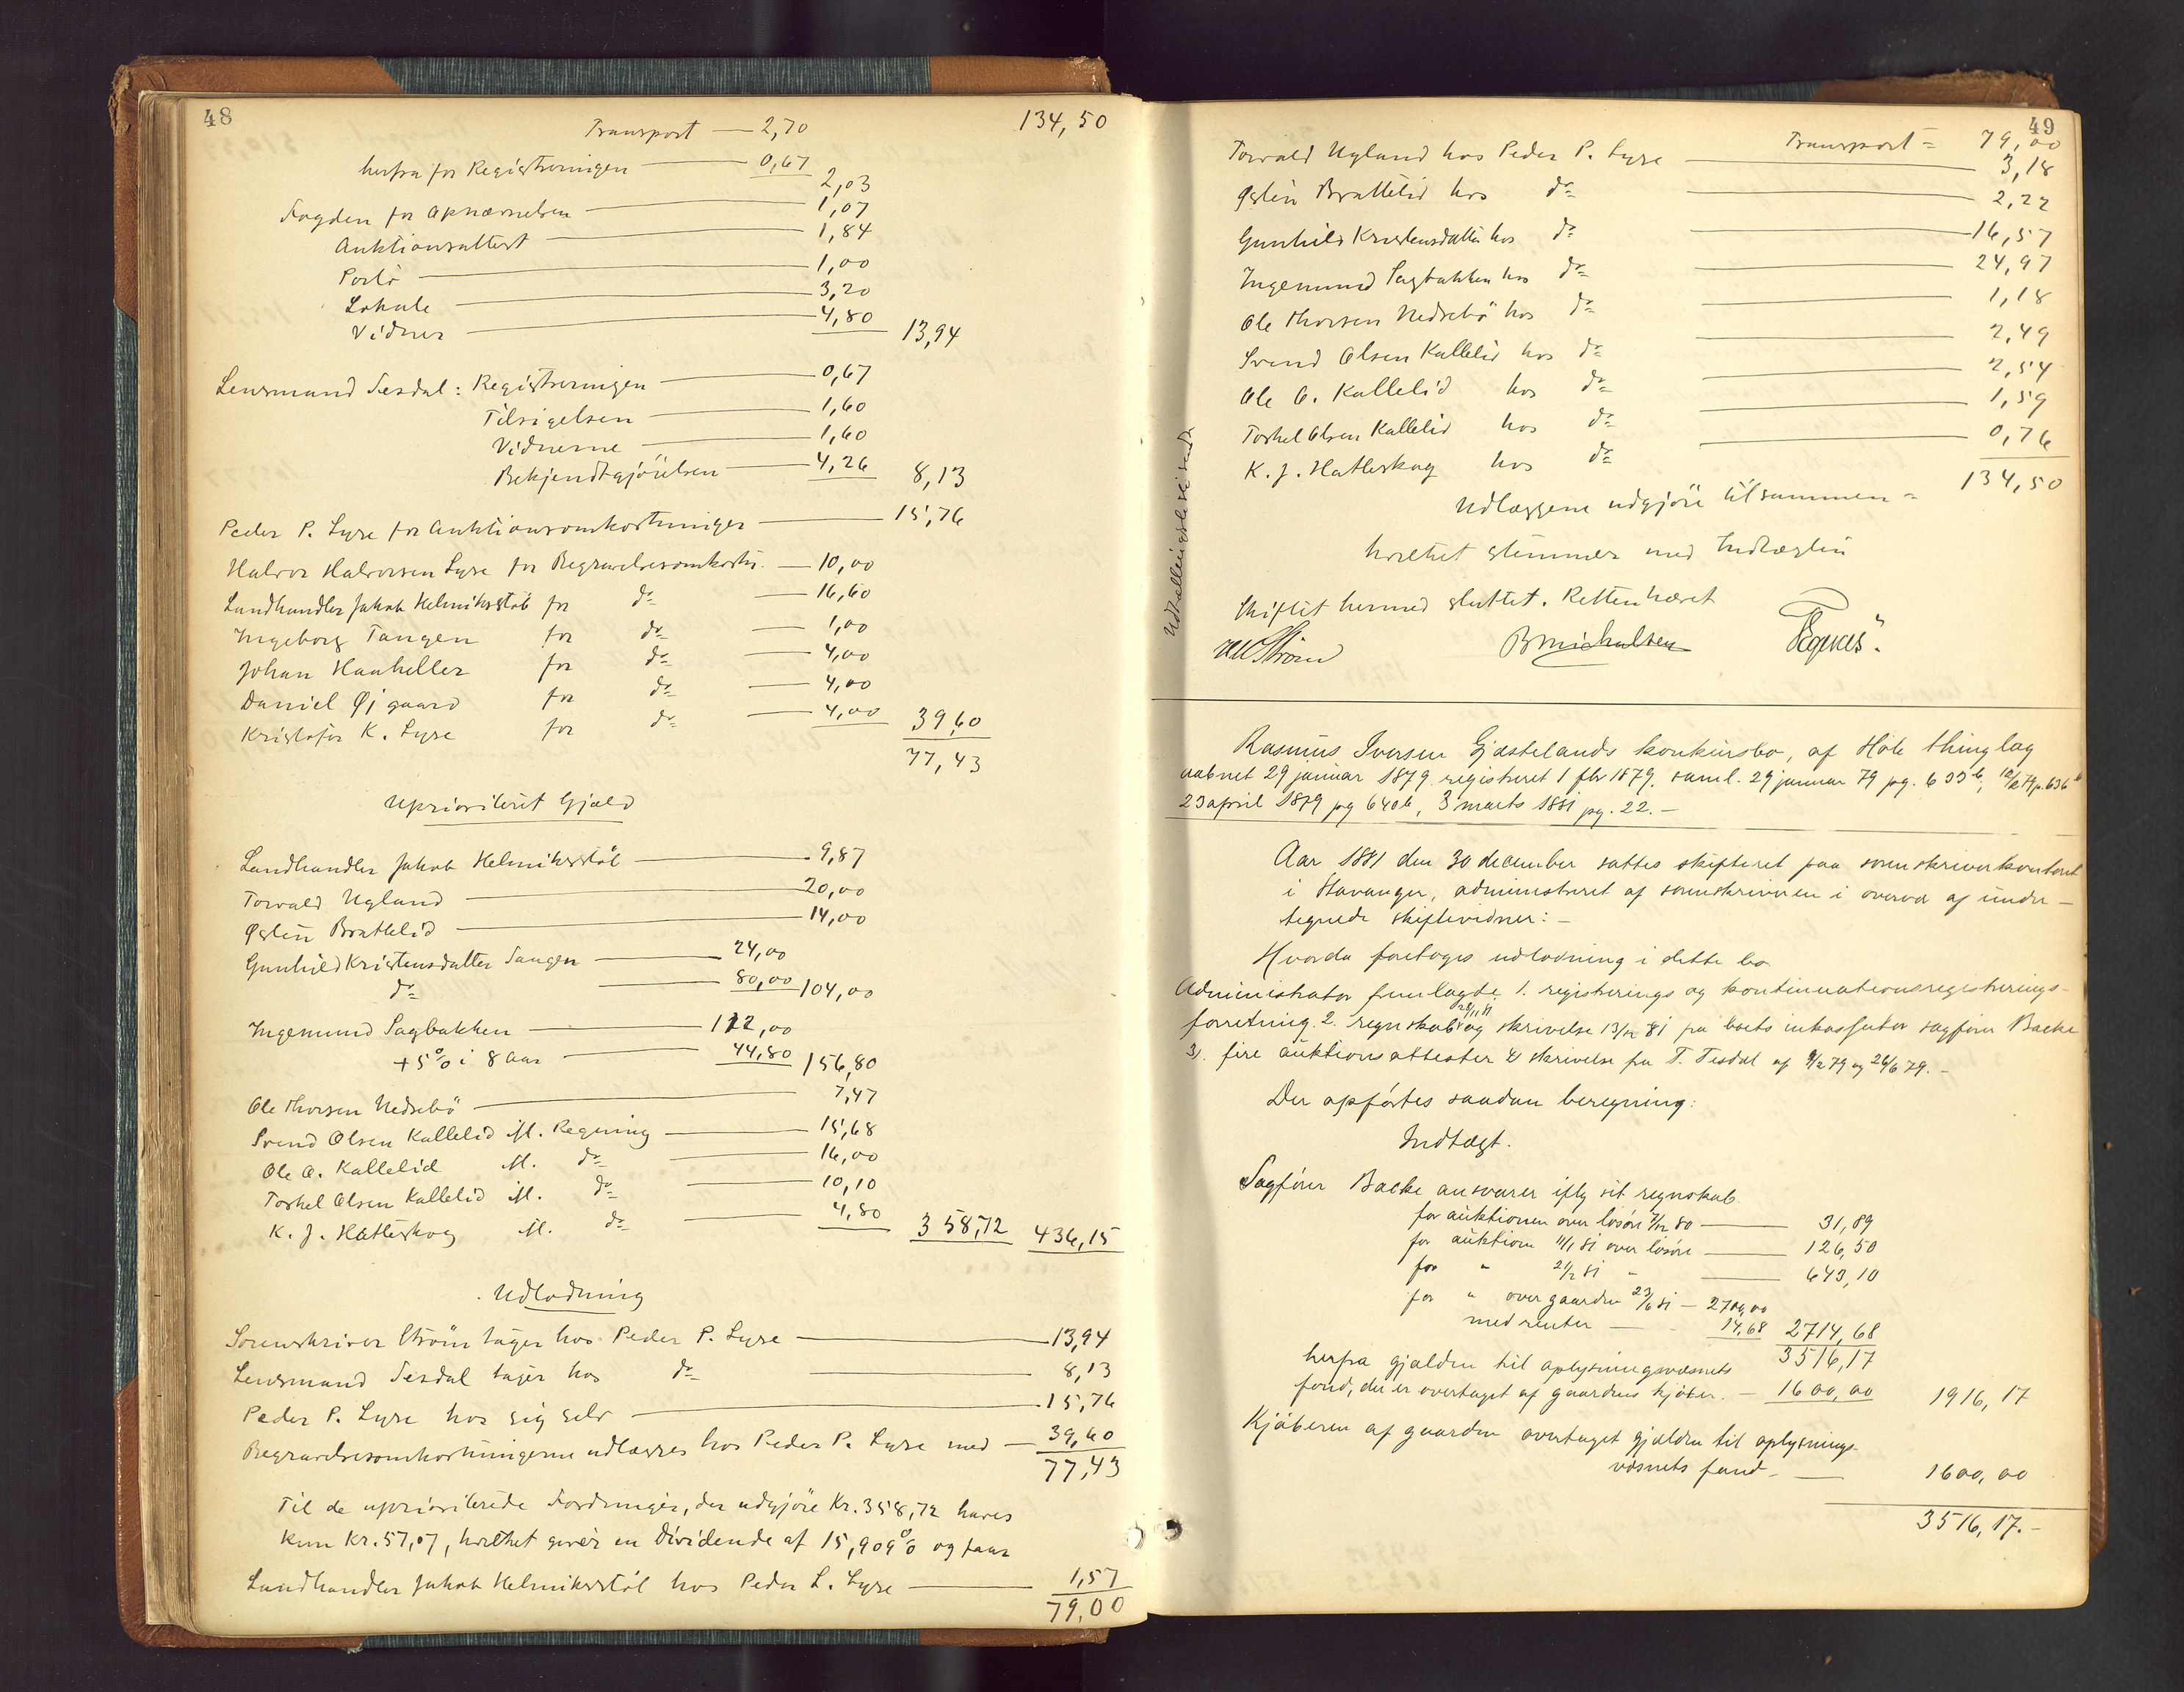 48
Transport — 2,70 134,50
herfra for Registreringen — 0,67
2,03
Fogden for Opnævnelsen — 1,07
Auktionsattest — 1,84
Porto — 1,00
Lokale — 3,20
Vidner — 4,80 13,94
Lensmand Tesdal: Registreringen — 0,67
Tilsigelsen — 1,60
Vidnerne — 1,60
Bekjendtgjörelsen — 4,26 8,13
Peder P. Lyse for Auktionsomkostninger — 15,76
Halvor Halvorsen Lyse for Begravelsesomkostn. — 10,00
Landhandler Jakob Helmiksstöl for do — 16,60
Ingeborg Tangen for do — 1,00
Johan Haaheller for do — 4,00
Daniel Øigaard for do — 4,00
Kristofer K. Lyse for do — 4,00 39,60
77,43
Uprioriteret Gjæld
Landhandler Jakob Helmiksstöl — 9,87
Torvald Ugland — 20,00
Østen Brattelid — 14,00
Gunhild Kristensdatter Tangen — 24,00
do — 80,00 104,00
Ingemund Sagbakken — 112,00
+ 5% i 8 aar — 44,80 156,80
Ole Thorsen Nedrebö — 7,47
Svend Olsen Kallelid ifl. Regning — 15,68
Ole O. Kallelid ifl. do — 16,00
Torkel Olsen Kallelid ifl. do — 10,10
K. J. Hatleskog ifl. do — 4,80 358,72 436,15
Udlodning
Sorenskriver Ström tager hos Peder P. Lyse — 13,94
Lensmand Tesdal tager hos do — 8,13
Peder P. Lyse hos sig selv — 15,76
Begravelsesomkostningerne udlægges hos Peder P. Lyse med — 39,60
77,43
Til de uprioriterede Fordringer, der udgjöre Kr. 358,72 haves
kun Kr. 57,07, hvilket giver en Dividende af 15,909% og faar
Landhandler Jakob Helmiksstöl hos Peder P. Lyse — 1,57
79,00
49
Transport = 79,00
Torvald Ugland hos Peder P. Lyse — 3,18
Østen Brattelid hos do — 2,22
Gunhild Kristensdatter hos do — 16,57
Ingemund Sagbakken hos do — 24,97
Ole Thorsen Nedrebö hos do — 1,18
Svend Olsen Kallelid hos do — 2,49
Ole O. Kallelid hos do — 2,54
Torkel Olsen Kallelid hos do — 1,59
K. J. Hatleskog hos do — 0,76
Udlæggene udgjöre tilsammen = 134,50
hvilket stemmer med Indtægten
Skiftet hermed sluttet. Retten hævet
Ström B Michalsen
Rasmus Iversen Gjestelands konkursbo, af Höle thinglag
aabnet 29 januar 1879. registreret 1 fbr 1879, saml. 29 januar 79 pg. 633b, 12/2 79 p. 636b
23 april 1879 pg 640b, 3 marts 1881 pg. 22. —
Aar 1881 den 30 december sattes skifteret paa sorenskriverkontoret
i Stavanger, administreret af sorenskriveren i overvær af under-
tegnede skiftevidner: —
Hvorda foretoges udlodning i dette bo
Administrator fremlagde 1. registerings og kontinuationsregistrerings-
forretning. 2. regnskab og skrivelse 13/12 81 fra boets inkassator sagförer Backe
3). fire auktionsattester & skrivelse fra T. Tesdal af 8/2 79 og 26/6 79. —
Der opförtes saadan beregning:
Indtægt.
Sagförer Backe ansvarer iflg sit regnskab
for auktionen over lösöre 7/12 80 — 31,89
for auktion 11/1 81 over lösöre — 126,50
for " 21/2 81 " — 643,10
for " over gaarden 23/6 81 — 2700,00
med renter — 14,68 2714,68
3516,17
herfra gjælden til oplysningsvæsnets
fond, der er overtaget af gaardens kjöber. — 1600,00 1916,17
Kjöberen af gaarden overtaget gjælden til oplysnings-
væsnets fond — 1600,00
3516,17. —